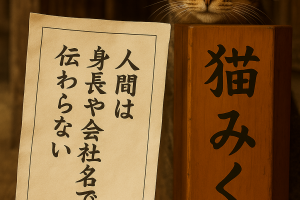 人間は
身長や会社名で
伝わらない
猫みく